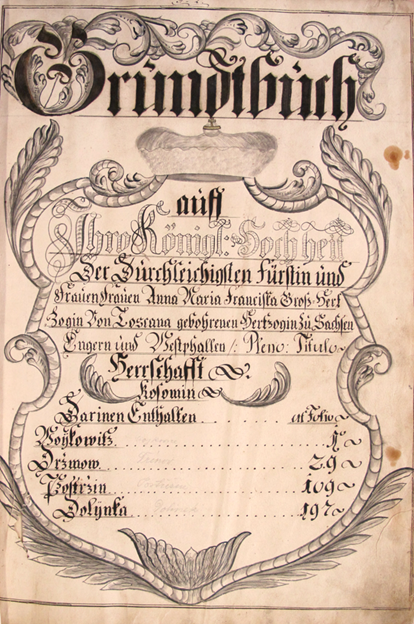 Grundtbuch
auff
Ihro Königl: Hochheit
Der Dürchleichigsten Fürstin und
Frauen Frauen Anna Maria Franciska Groß-Hert
Zogin Von Toscana gebohrenen Hertzogin Zu Sachsen
Engern und Westphallen /: Pleno: Titulo
Herrschafft
Kosomin
Darinen Enthalten in Folio
Woykowitz
Držmow 29
Postržin 109
Dolÿnka 197